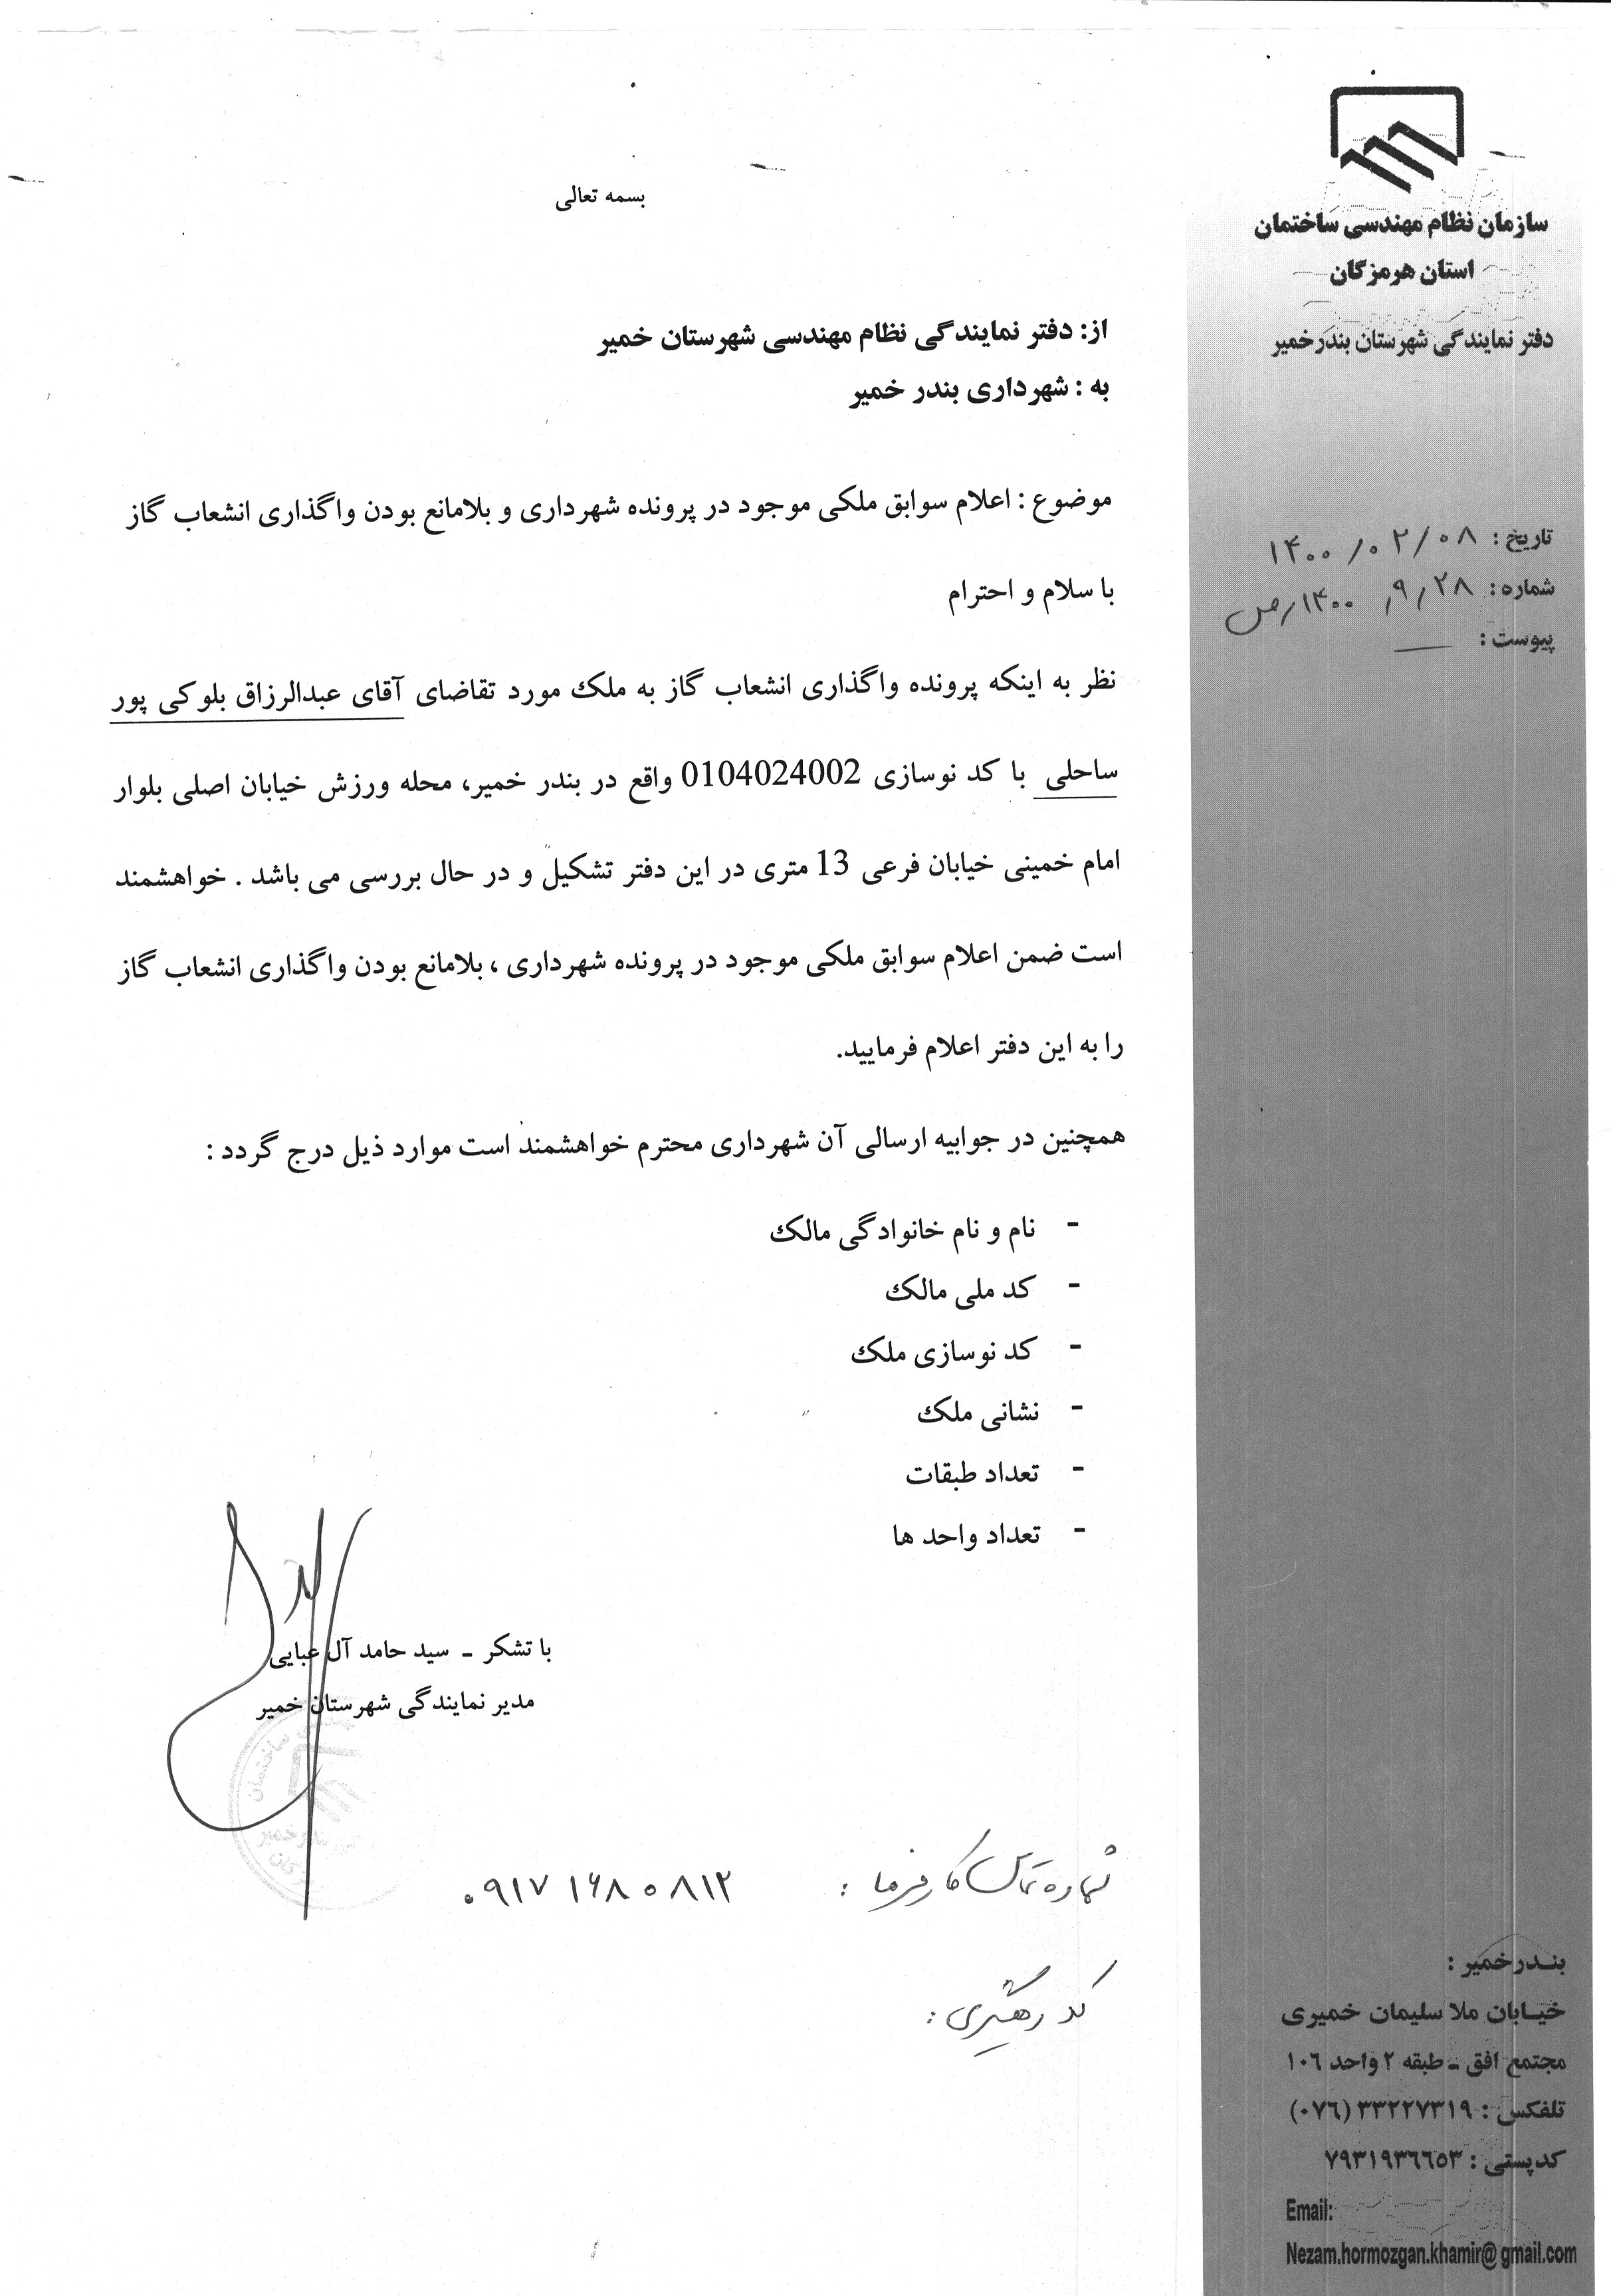 سازمان نظام مهندسی ساختمان
استان هرمزگان
دفتر نمایندگی شهرستان بندرخمیر
تاریخ: ۱۴۰۰/۰۲/۰۸
شماره: ۱۴۰۰/ص/۹/۲۸
پیوست: —
بسمه تعالی
از: دفتر نمایندگی نظام مهندسی شهرستان خمیر
به : شهرداری بندر خمیر
موضوع : اعلام سوابق ملکی موجود در پرونده شهرداری و بلامانع بودن واگذاری انشعاب گاز
با سلام و احترام
نظر به اینکه پرونده واگذاری انشعاب گاز به ملک مورد تقاضای آقای عبدالرزاق بلوکی پور
ساحلی با کد نوسازی 0104024002 واقع در بندر خمیر، محله ورزش خیابان اصلی بلوار
امام خمینی خیابان فرعی 13 متری در این دفتر تشکیل و در حال بررسی می باشد . خواهشمند
است ضمن اعلام سوابق ملکی موجود در پرونده شهرداری ، بلامانع بودن واگذاری انشعاب گاز
را به این دفتر اعلام فرمایید.
همچنین در جوابیه ارسالی آن شهرداری محترم خواهشمند است موارد ذیل درج گردد :
- نام و نام خانوادگی مالک
- کد ملی مالک
- کد نوسازی ملک
- نشانی ملک
- تعداد طبقات
- تعداد واحد ها
با تشکر ـ سید حامد آل عبایی
مدیر نمایندگی شهرستان خمیر
شماره تماس کارفرما : ۰۹۱۷۱۶۸۰۸۱۲
کد رهگیری :
بندرخمیر :
خیابان ملا سلیمان خمیری
مجتمع افق ـ طبقه ۲ واحد ۱۰۶
تلفکس : ۳۳۲۲۷۳۱۹ (۰۷۶)
کدپستی : ۷۹۳۱۹۳۶۶۵۳
Email:
Nezam.hormozgan.khamir@gmail.com